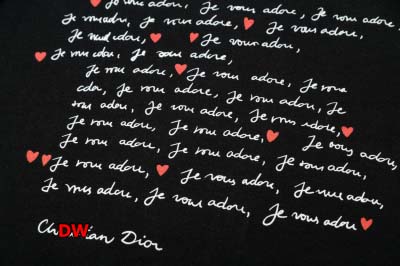 Je vous adore, Je vous adore, Je vous adore,
Je vous adore, Je vous adore, Je vous adore,
Je vous adore, Je vous adore,
Je vous adore, Je vous adore,
Je vous adore, Je vous adore, Je vous
adore, Je vous adore, Je vous adore, Je
vous adore, Je vous adore, Je vous adore,
Je vous adore, Je vous adore, Je vous adore,
Je vous adore, Je vous adore, Je vous adore,
Je vous adore, Je vous adore, Je vous adore,
Je vous adore, Je vous adore, Je vous adore
Christian Dior
DW